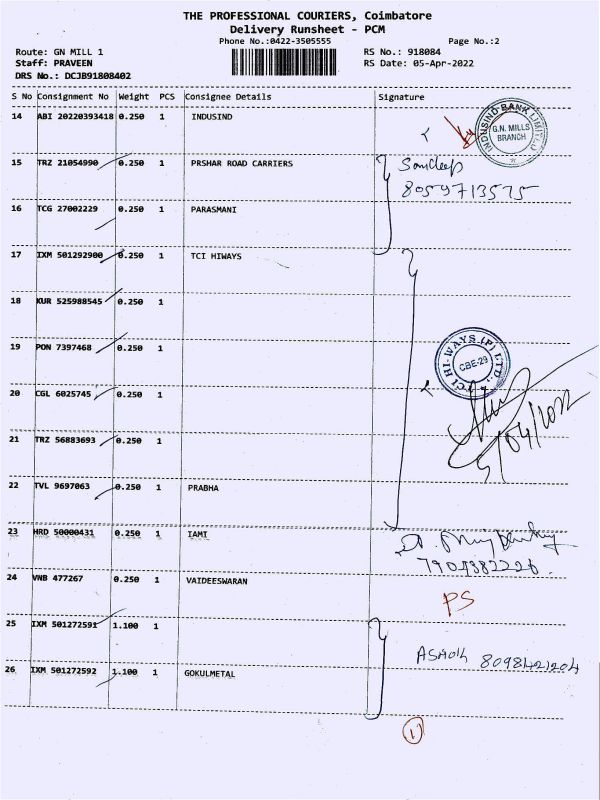 THE PROFESSIONAL COURIERS, Coimbatore
Delivery Runsheet - PCM
Phone No.:0422-3505555 Page No.:2
Route: GN MILL 1 RS No.: 918084
Staff: PRAVEEN RS Date: 05-Apr-2022
DRS No.: DCJB91808402
S No Consignment No Weight PCS Consignee Details Signature
14 ABI 20220393418 0.250 1 INDUSIND
INDUSIND BANK LIMITED
G.N. MILLS
BRANCH
15 TRZ 21054990 0.250 1 PRSHAR ROAD CARRIERS Sandeep
8059713575
16 TCG 27002229 0.250 1 PARASMANI
17 IXM 501292900 0.250 1 TCI HIWAYS
18 KUR 525988545 0.250 1
19 PON 7397468 0.250 1
HI-WAYS (P) LTD.,
CBE-29
20 CGL 6025745 0.250 1
5/04/2022
21 TRZ 56883693 0.250 1
22 TVL 9697063 0.250 1 PRABHA
23 HRD 50000431 0.250 1 IAMI
24 VNB 477267 0.250 1 VAIDEESWARAN
PS
25 IXM 501272591 1.100 1
ASHOK 8098421204
26 IXM 501272592 1.100 1 GOKULMETAL